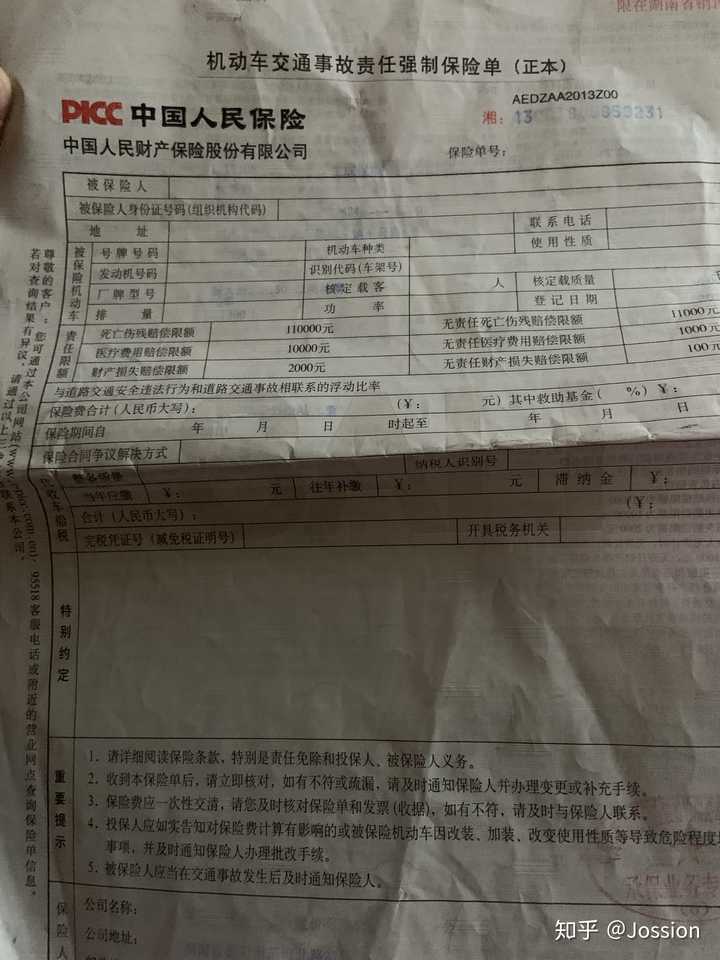 限在湖南省销
机动车交通事故责任强制保险单 (正本)
PICC 中国人民保险
AEDZAA2013Z00
湘: 13
中国人民财产保险股份有限公司
保险单号:
被保险人
被保险人身份证号码(组织机构代码)
地 址
联系电话
被保险机动车
号牌号码
机动车种类
使用性质
发动机号码
识别代码(车架号)
厂牌型号
核定载客
人
核定载质量
排 量
功 率
登记日期
责任限额
死亡伤残赔偿限额
110000元
无责任死亡伤残赔偿限额
11000元
医疗费用赔偿限额
10000元
无责任医疗费用赔偿限额
1000元
财产损失赔偿限额
2000元
无责任财产损失赔偿限额
100元
与道路交通安全违法行为和道路交通事故相联系的浮动比率
保险费合计(人民币大写):
(¥:
元) 其中救助基金( %) ¥:
保险期间自 年 月 日 时起至 年 月 日
保险合同争议解决方式
代收车船税
整备质量
纳税人识别号
当年应缴
¥: 元
往年补缴
¥: 元
滞纳金
¥:
合计(人民币大写):
(¥:
完税凭证号(减免税证明号)
开具税务机关
特别约定
重要提示
1. 请详细阅读保险条款,特别是责任免除和投保人、被保险人义务。
2. 收到本保险单后,请立即核对,如有不符或疏漏,请及时通知保险人并办理变更或补充手续。
3. 保险费应一次性交清,请您及时核对保险单和发票(收据),如有不符,请及时与保险人联系。
4. 投保人应如实告知对保险费计算有影响的或被保险机动车因改装、加装、改变使用性质等导致危险程度增
事项,并及时通知保险人办理批改手续。
5. 被保险人应当在交通事故发生后及时通知保险人。
承保业务专
保险人
公司名称:
公司地址:
尊敬的客户:您可通过本公司网站(www.
com.cn)、95518客服电话或附近的营业网点查询保险单信息。
若对查询结果有异议,请通过以上
联系本公司。
知乎 @Jossion